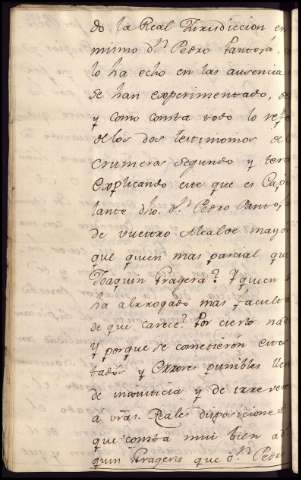 do la Real Jurisdiccion en
mismo Dn. Pedro Pantoja
lo ha echo en las ausencia
se han experimentado,
y como consta todo lo
de los dos testimonios de
numeros segundo y ter
explicando este que es Cap
dho. Dn. Pedro Panto
de vuestro Alcalde mayo
que quien mas parcial qu
Joaquin Fragera? Y quien
ha abrrogado mas faculta
de que carece? Por cierto nad
Y porque se cometieron
y Errores punibles lle
de injusticia y de irrever
a vras. Reales disposicione
que consta mui bien a
quin Frageris que Dn. Pedro